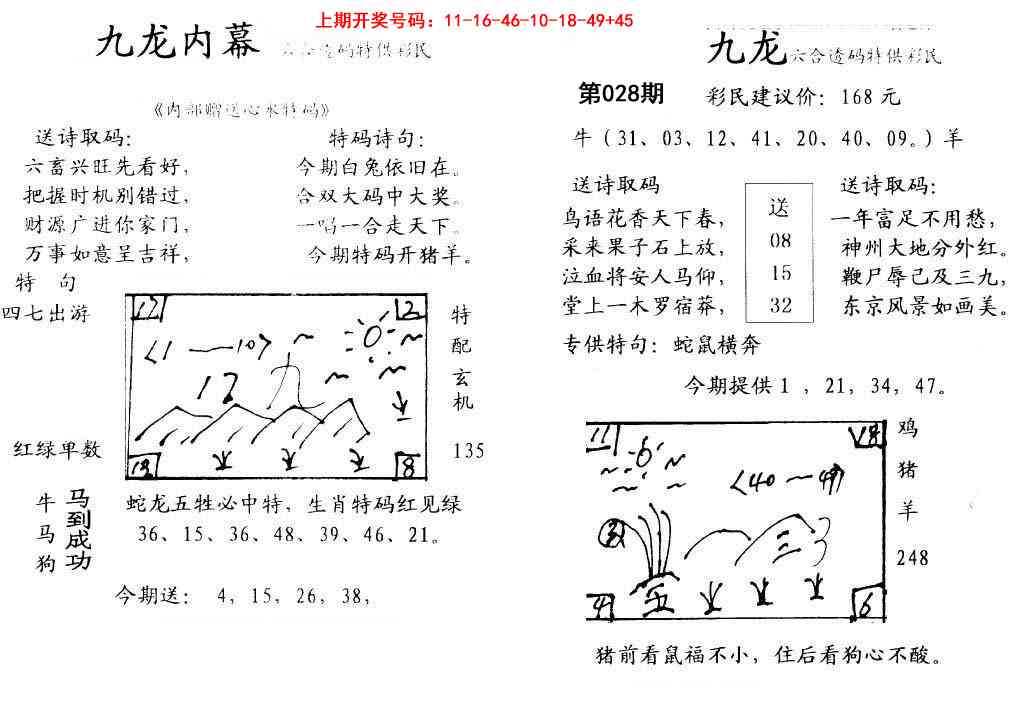 上期开奖号码：11-16-46-10-18-49+45
九龙内幕
码特供彩民
《内部赠送心水特码》
送诗取码：
六畜兴旺先看好，
把握时机别错过，
财源广进你家门，
万事如意呈吉祥，
特码诗句：
今期白兔依旧在。
合双大码中大奖。
一唱一合走天下。
今期特码开猪羊。
特 句
四七出游
红绿单数
12
2
〈1 — 10〉
12
九
13
8
特
配
玄
机
135
牛
马
狗
马到成功
蛇龙五牲必中特，生肖特码红见绿
36、15、36、48、39、46、21。
今期送： 4，15，26，38，
九龙六合透码特供彩民
第028期
彩民建议价：168元
牛（31、03、12、41、20、40、09。）羊
送诗取码
鸟语花香天下春，
采来果子石上放，
泣血将安人马仰，
堂上一木罗宿莽，
送
08
15
32
送诗取码：
一年富足不用愁，
神州大地分外红。
鞭尸辱已及三九，
东京风景如画美。
专供特句：蛇鼠横奔
今期提供1 ，21，34，47。
11
〈40 — 49〉
三
4
五
6
鸡
猪
羊
248
猪前看鼠福不小，住后看狗心不酸。